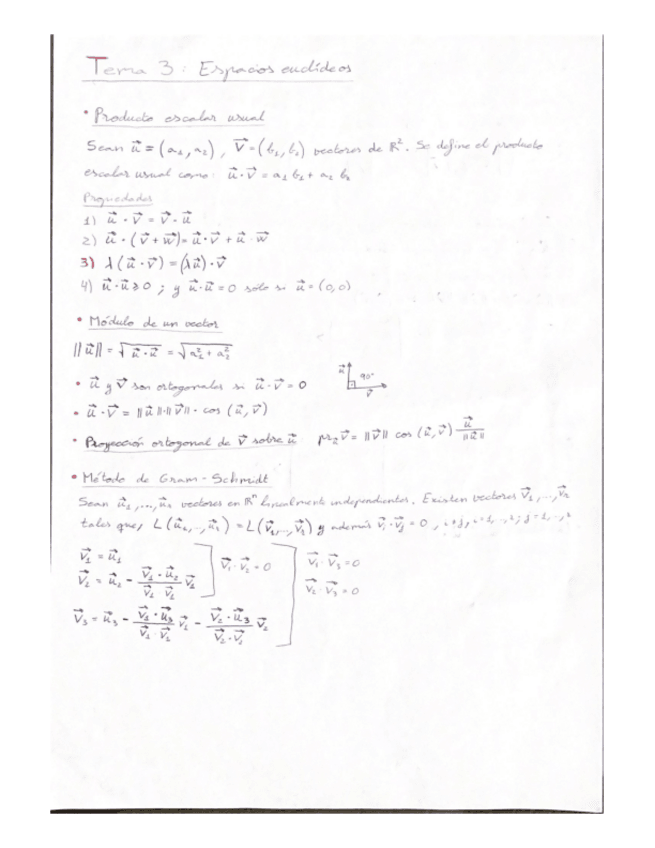 Tema 3: Espacios euclídeos
• Producto escalar usual
Sean u⃗ = (a₁, a₂), v⃗ = (b₁, b₂) vectores de ℝ². Se define el producto
escalar usual como: u⃗ · v⃗ = a₁ b₁ + a₂ b₂
Propiedades
1) u⃗ · v⃗ = v⃗ · u⃗
2) u⃗ · (v⃗ + w⃗) = u⃗ · v⃗ + u⃗ · w⃗
3) λ (u⃗ · v⃗) = (λu⃗) · v⃗
4) u⃗ · u⃗ ≥ 0 ; y u⃗ · u⃗ = 0 solo si u⃗ = (0,0)
• Módulo de un vector
||u⃗|| = √(u⃗ · u⃗) = √(a₁² + a₂²)
• u⃗ y v⃗ son ortogonales si u⃗ · v⃗ = 0 u⃗ 90° v⃗
• u⃗ · v⃗ = ||u⃗|| · ||v⃗|| · cos (u⃗, v⃗)
• Proyección ortogonal de v⃗ sobre u⃗ pr_u⃗ v⃗ = ||v⃗|| cos (u⃗, v⃗) u⃗/||u⃗||
• Método de Gram-Schmidt
Sean u⃗₁, ..., u⃗ vectores en ℝⁿ linealmente independientes. Existen vectores v⃗₁, ..., v⃗
tales que, L(u⃗₁, ..., u⃗) = L(v⃗₁, ..., v⃗) y además v⃗ᵢ · v⃗ⱼ = 0, i≠j,
v⃗₁ = u⃗₁
v⃗₂ = u⃗₂ - (v⃗₁ · u⃗₂)/(v⃗₁ · v⃗₁) v⃗₁ ] v⃗₁ · v⃗₂ = 0
v⃗₃ = u⃗₃ - (v⃗₁ · u⃗₃)/(v⃗₁ · v⃗₁) v⃗₁ - (v⃗₂ · u⃗₃)/(v⃗₂ · v⃗₂) v⃗₂ ] v⃗₁ · v⃗₃ = 0
v⃗₂ · v⃗₃ = 0